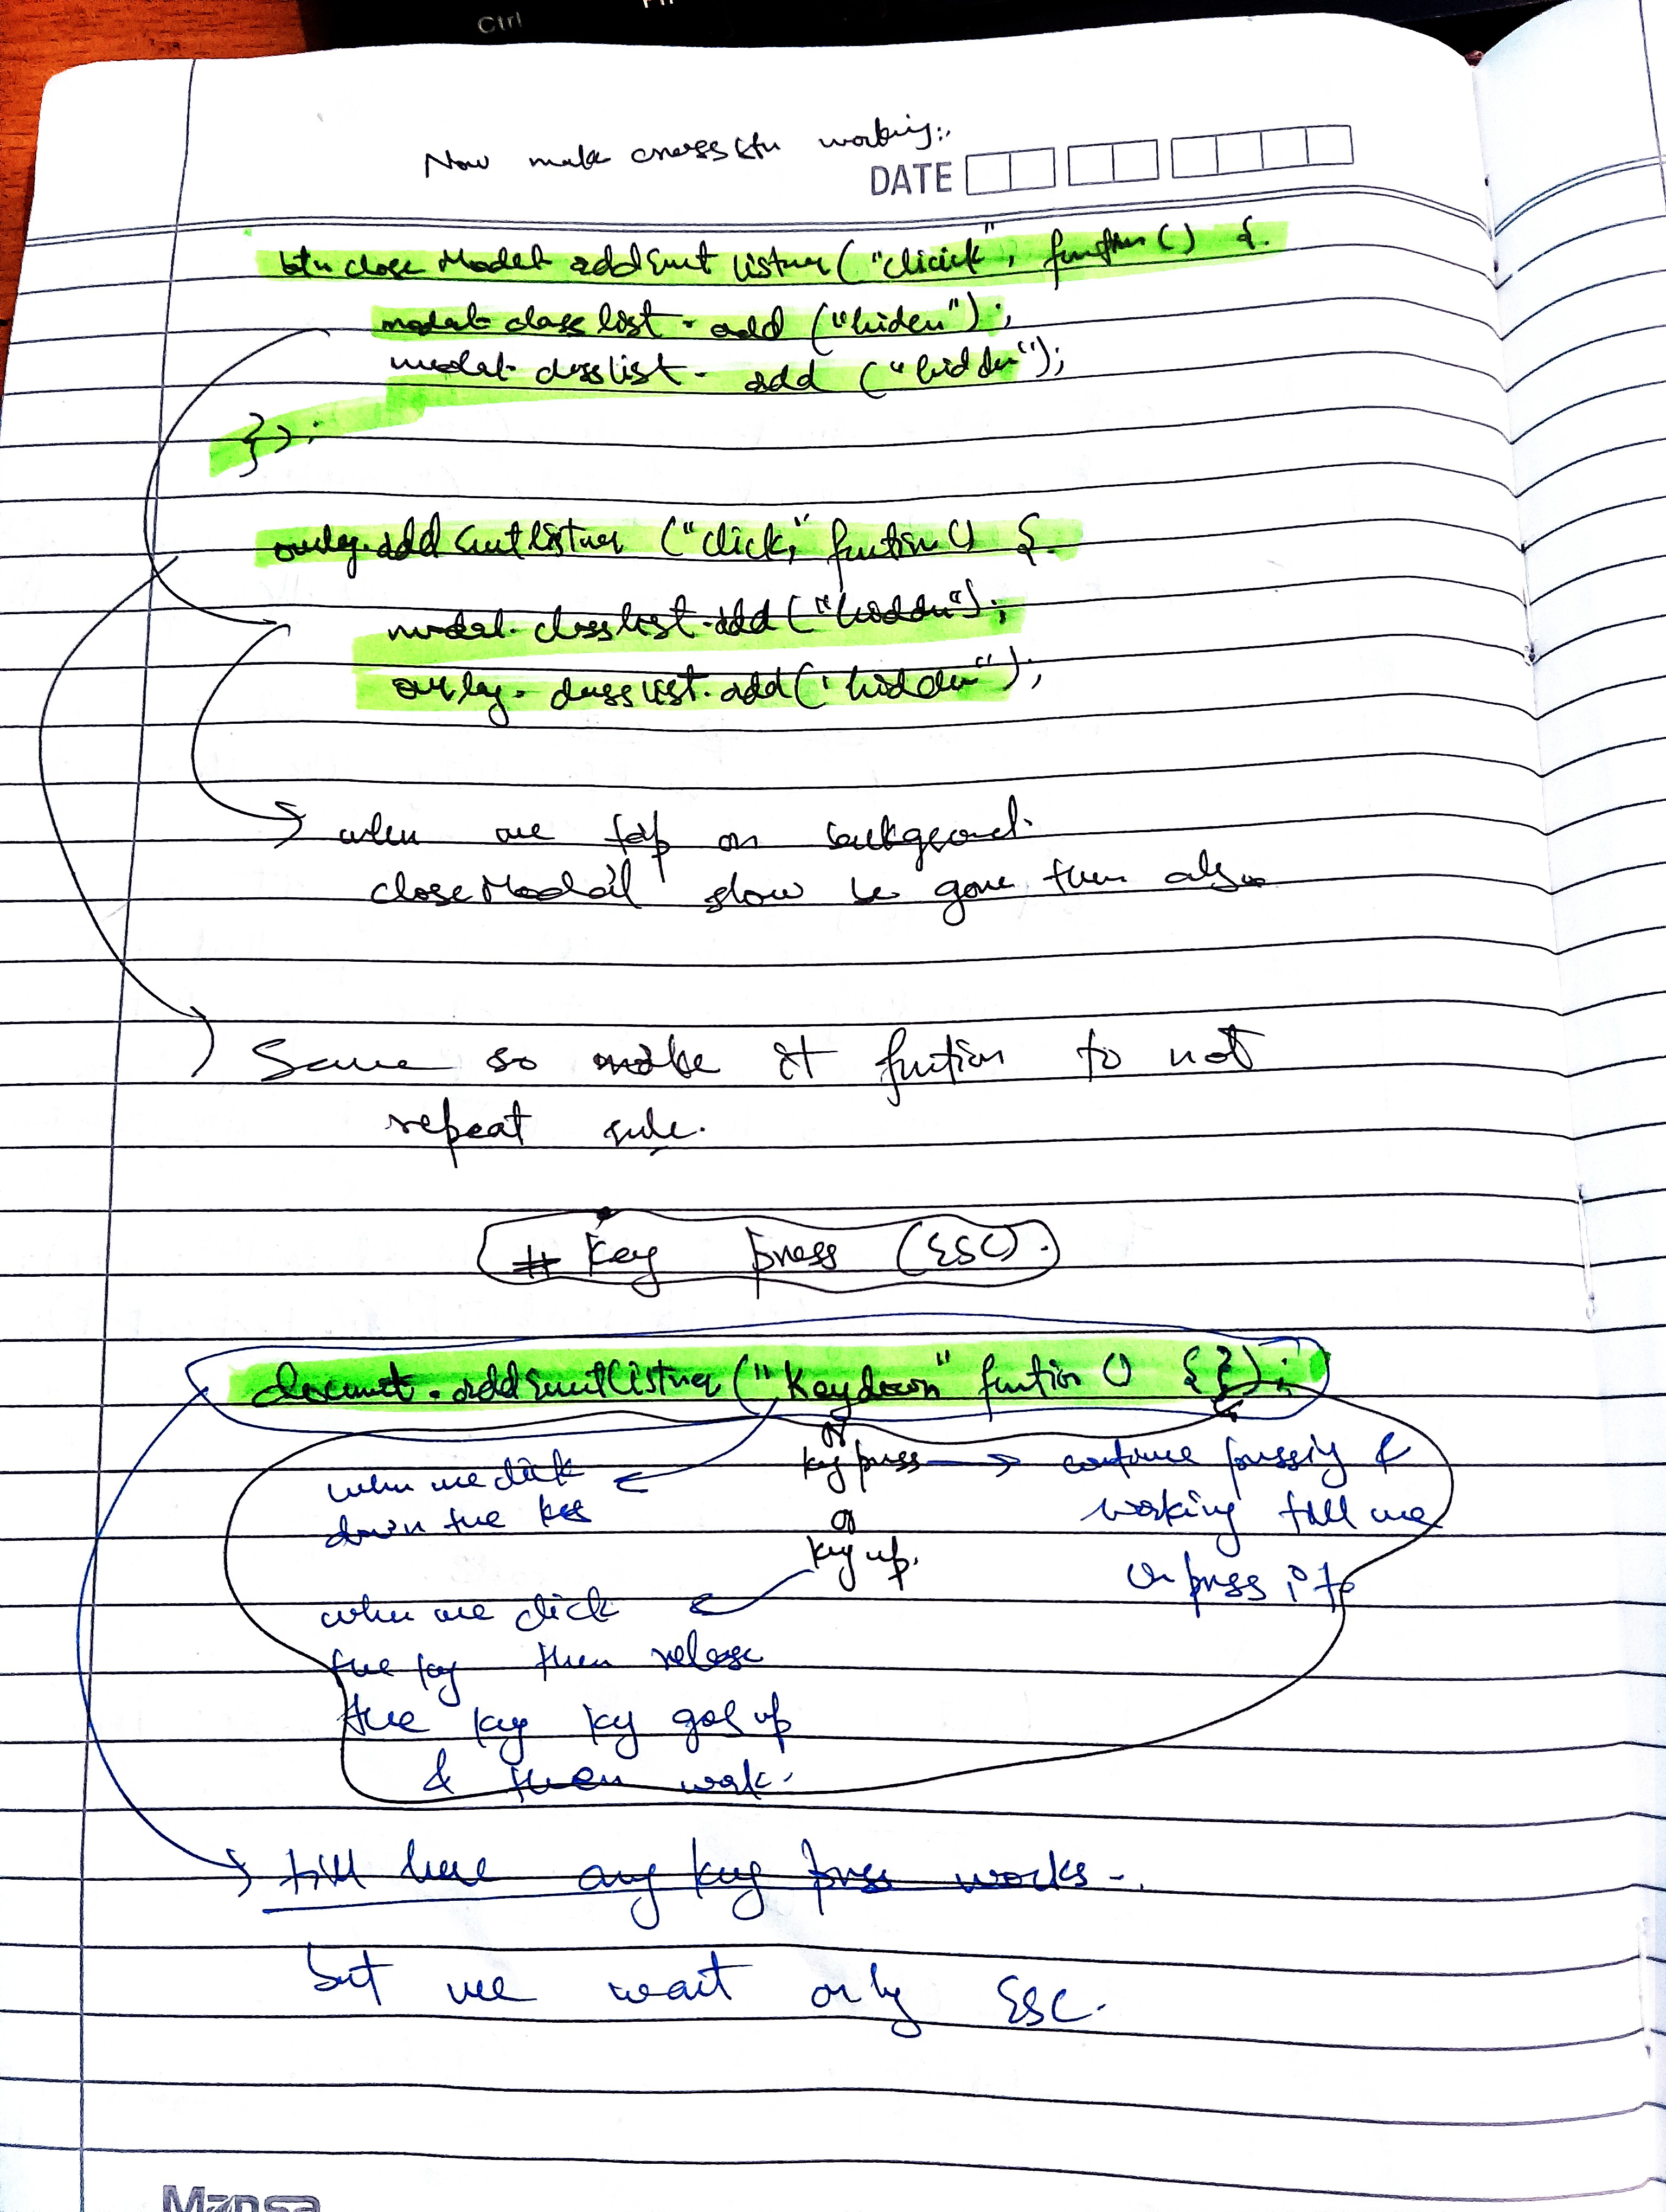 Ctrl
Now make cross btn working:,
DATE
btn close Modal addEvent listner ("click", function () {.
modal classlist . add ("hiden");
modal. classlist. add ("hidden");
});
overlay.addEventlistner ("click," function () {.
modal. classlist.add ("hidden");
overlay. classlist.add ('hidden");
when we tap on background.
close Modal show be gone then also
Same so make it function to not
repeat rule.
# Key press (ESC).
document.addEventListner ("Keydown" function () { });
or
when we click
key press → continue pressing &
down the key
or
working till we
key up.
un press it
when we click
the key then release
the key key goes up
& then work.
till here any key press works-.
but we want only ESC.
Mansa